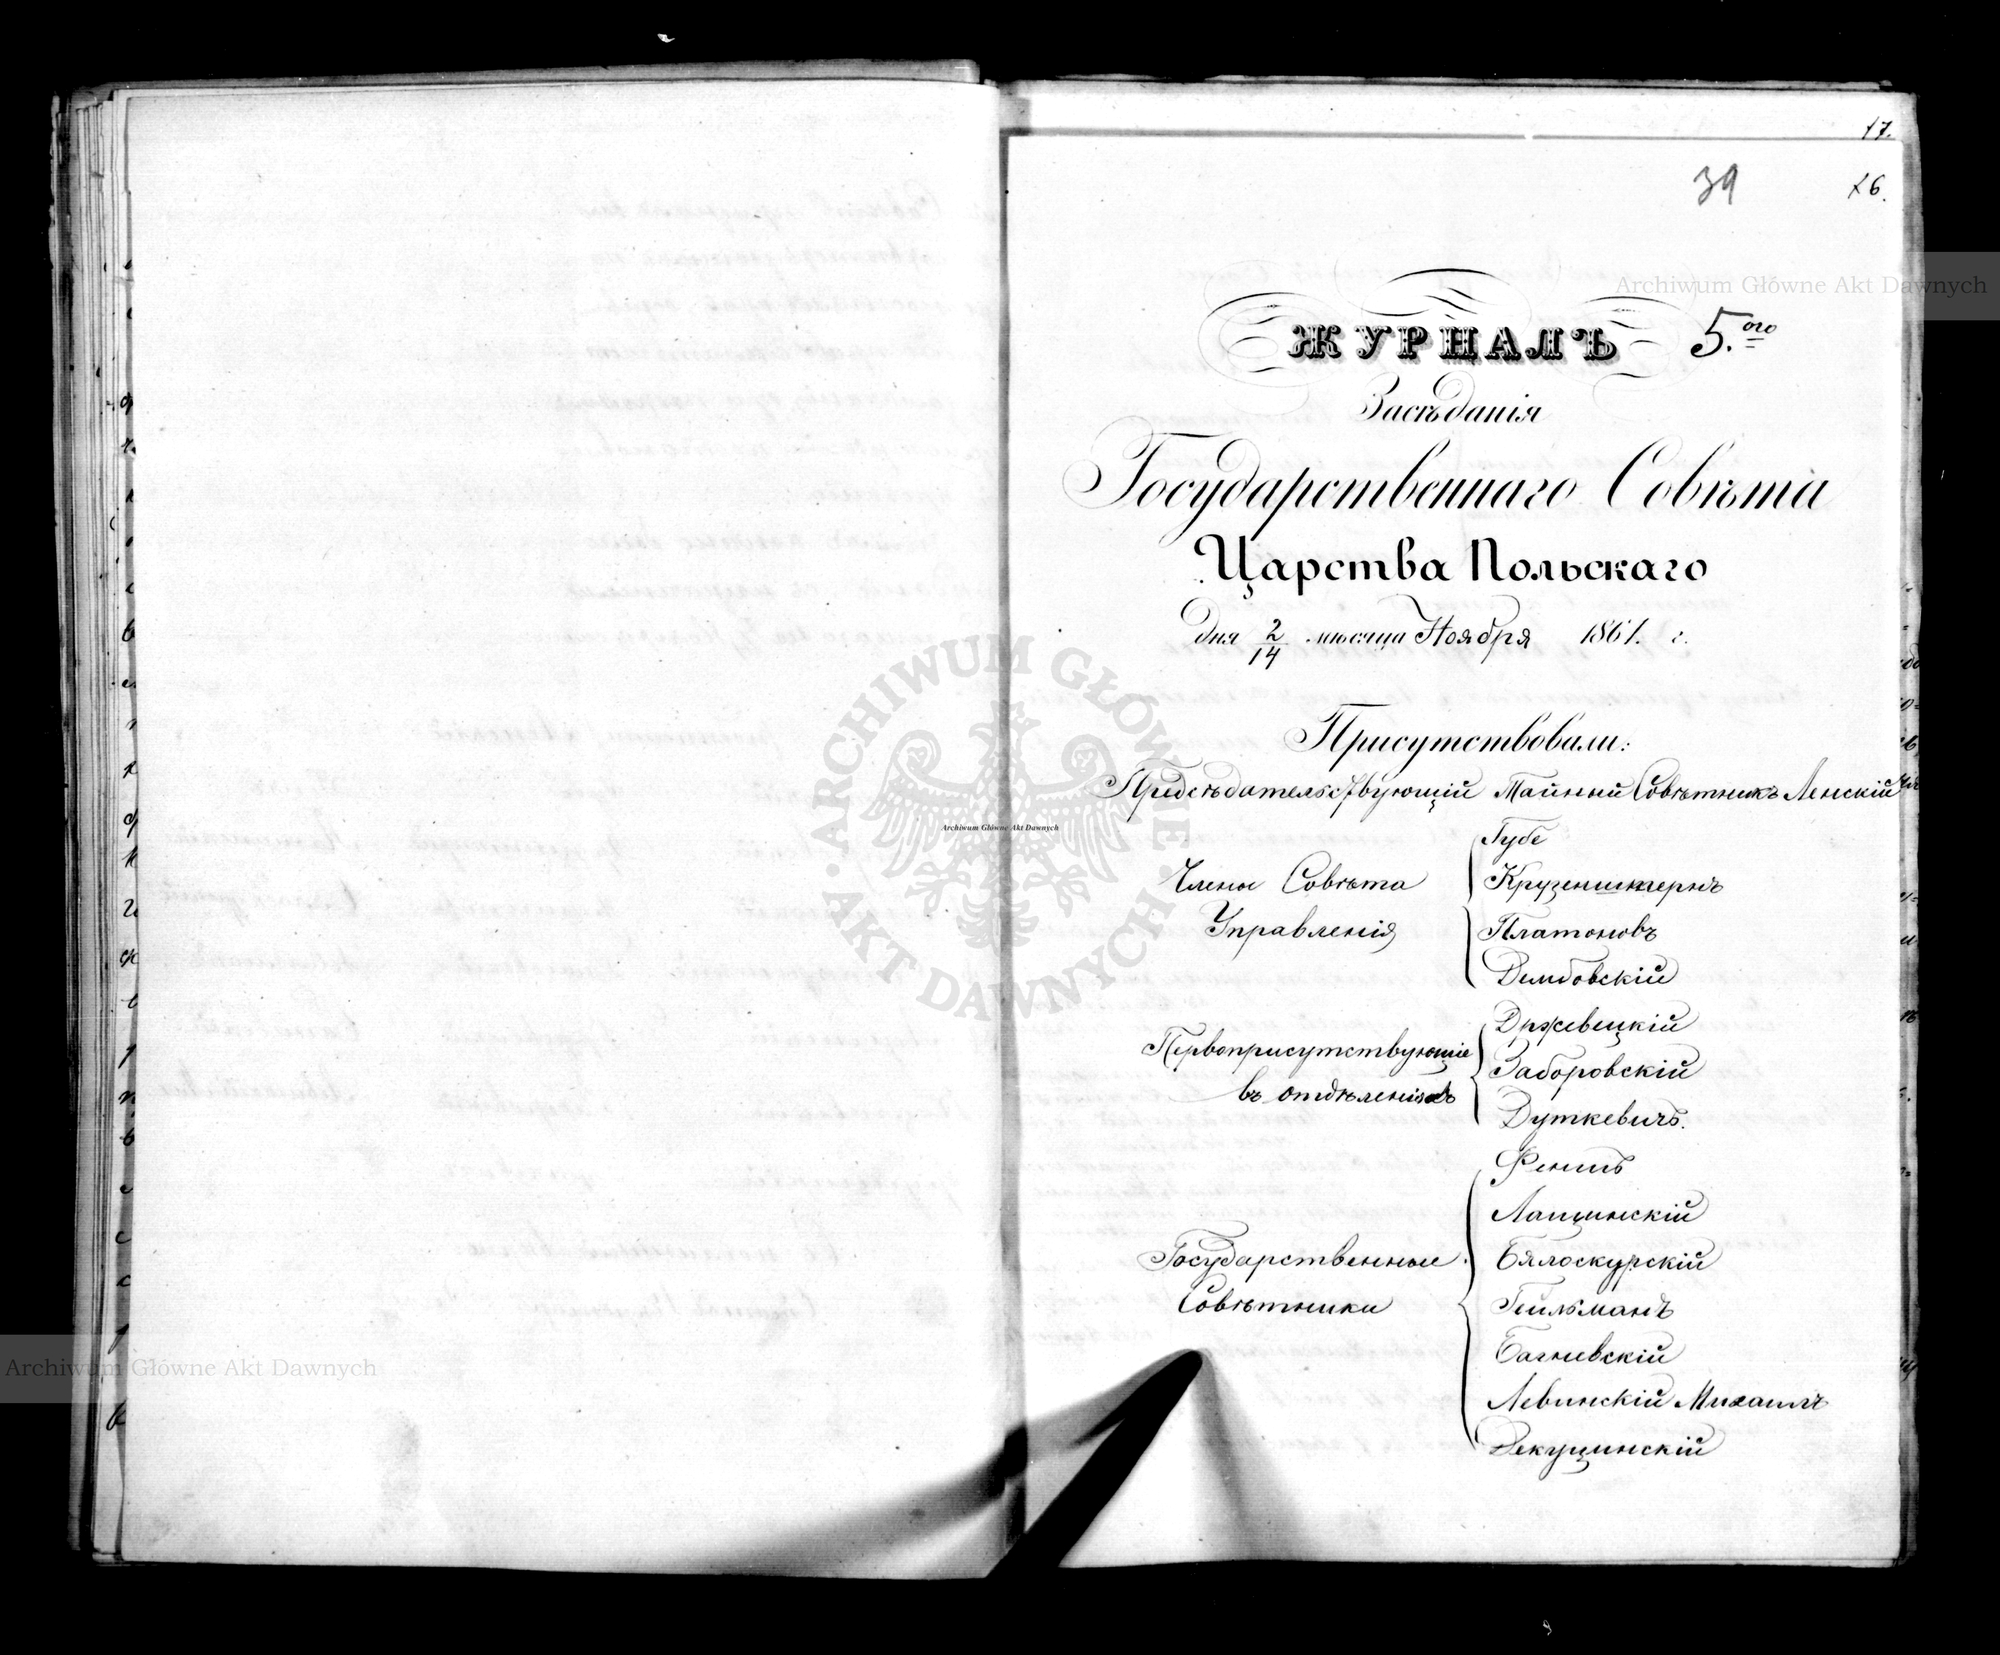 17.
39
16.
ЖУРНАЛЪ 5.ого
Засѣданія
Государственнаго Совѣта
Царства Польскаго
дня 2/14 мѣсяца Ноября 1861. г.
Присутствовали:
Предсѣдательствующій Тайный Совѣтникъ Ленскій
Члены Совѣта
Управленія
Губе
Крузенштернъ
Платоновъ
Дембовскій
Первоприсутствующіе
въ отдѣленіяхъ
Држевецкій
Заборовскій
Дуткевичъ.
Государственные
Совѣтники
Феншъ
Лащинскій
Бялоскурскій
Гейльманъ
Багневскій
Левинскій Михаилъ
Декуцинскій
ARCHIWUM GŁÓWNE AKT DAWNYCH
Archiwum Główne Akt Dawnych
Archiwum Główne Akt Dawnych
Archiwum Główne Akt Dawnych